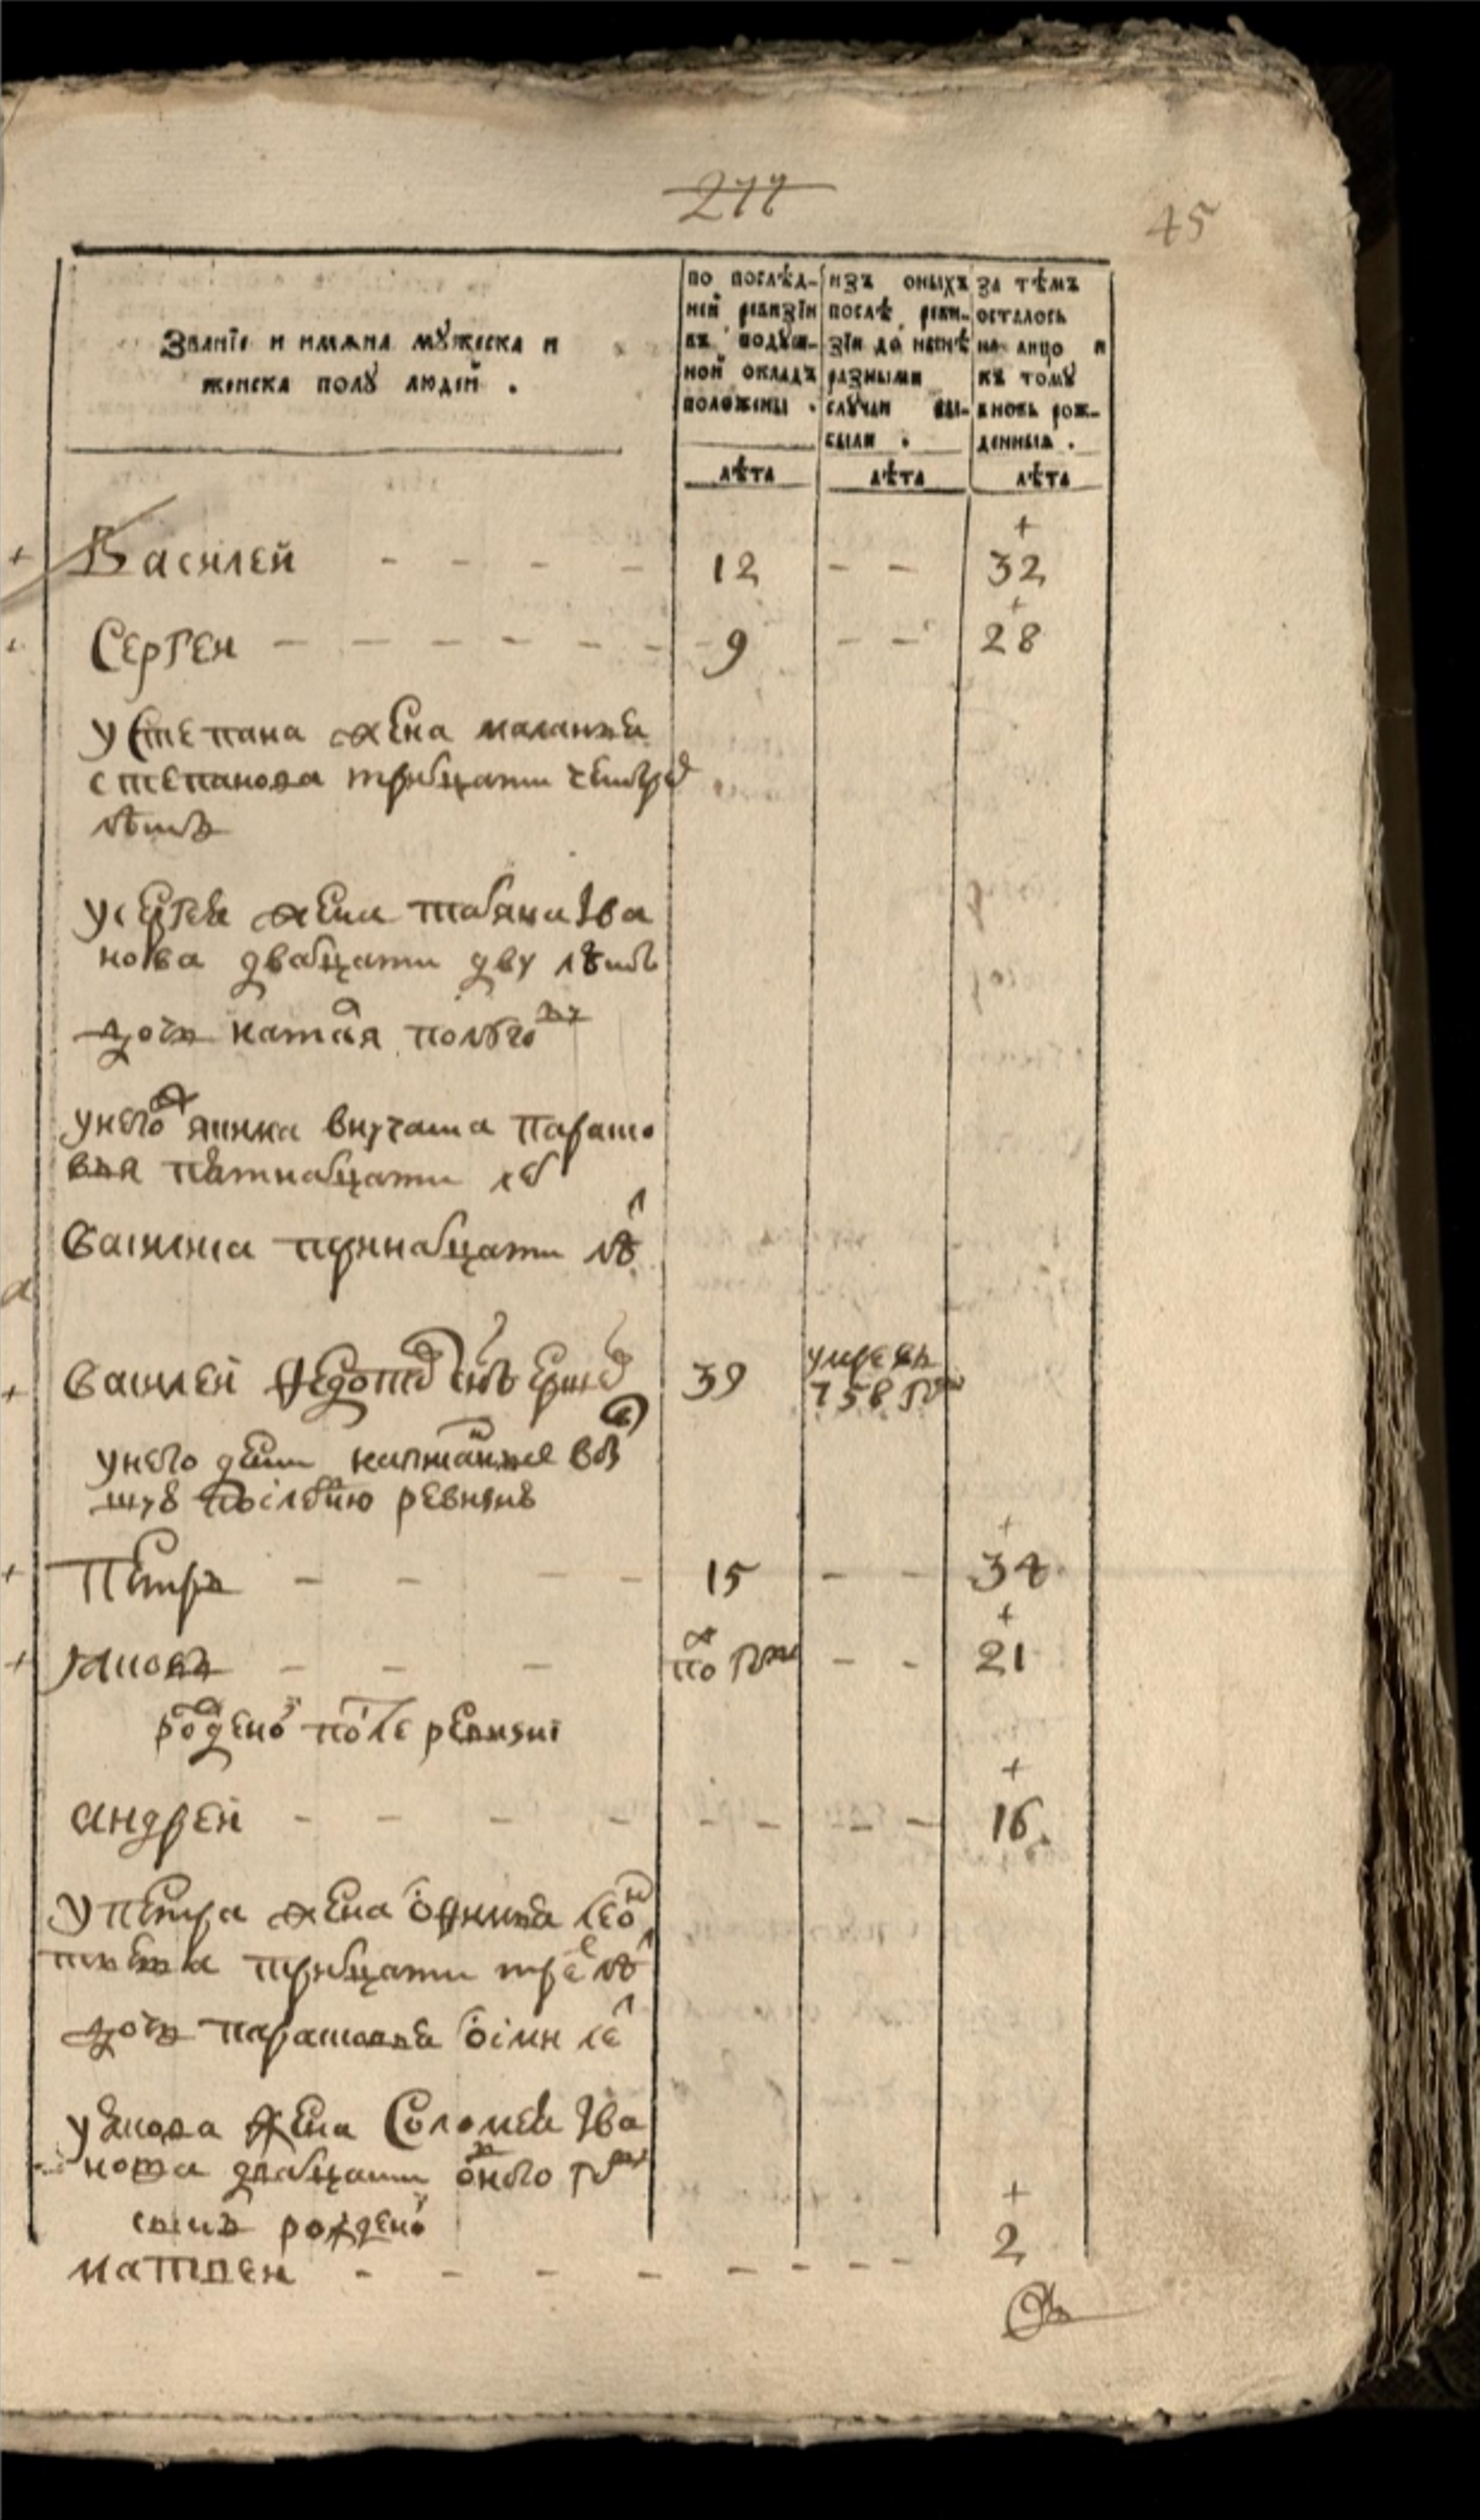 277
45
Званїе и имѧна мꙋжеска и
женска полꙋ людей .
по послѣд-
ней ревизїи
въ подꙋш-
ной окладъ
положены .
изъ оныхъ
послѣ реви-
зїи до нынѣ
разными
слꙋчаи вы-
были .
за тѣмъ
осталось
на лицо и
къ томꙋ
вновь рож-
денныя .
лѣта
лѣта
лѣта
+ Василей - - - - 12 - - + 32
Сергеи - - - - - - 9 - - + 28
у степана жена маланья
степанова тритцати четыре
лѣтъ
у сергея жена татяна Iва
нова дватцати дву лѣтъ
дочь
у него внучата парасковья
пятнатцати ле
василиса тринатцати лѣ
+ василей федотовъ снъ 39 умре въ
758 году
у него дети написанные въ
послѣднюю ревизию
+ Петръ - - - - 15 - - + 34
+ Яковъ - - - по году - - + 21
рожденой после ревизиі
андрей - - - - - - - - + 16
у петра жена леон
тьева тритцати трехъ лѣ
дочь парасковья осми ле
у якова жена Соломея Iва
нова дватцати одного году
сынъ рожденой
матвеи - - - - - - - - + 2